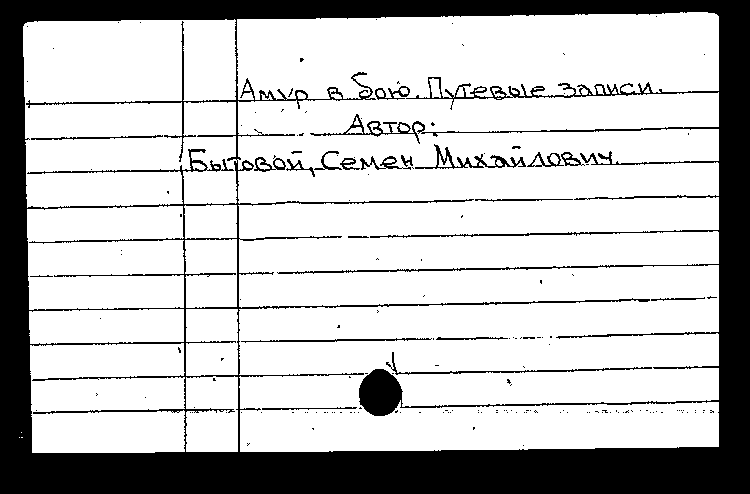 Амур в бою. Путевые записи.
Автор:
Бытовой, Семен Михайлович.